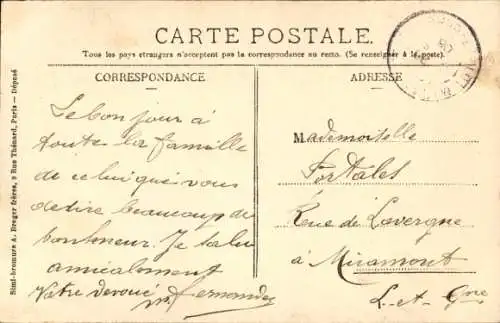 CARTE POSTALE.
Tous les pays étrangers n'acceptent pas la correspondance au recto. (Se renseigner à la poste).
CORRESPONDANCE
Le bonjour à
toute la famille
de celui qui vous
desire beaucoup de
bonheur. Je salue
amicalement
Votre devoué M. Fernandez
ADRESSE
Mademoiselle
Portales
Rue de Lavergne
à Miramont
L-et-Gne
Simi-bromure A. Breger frères, 9 Rue Thénard, Paris — Déposé